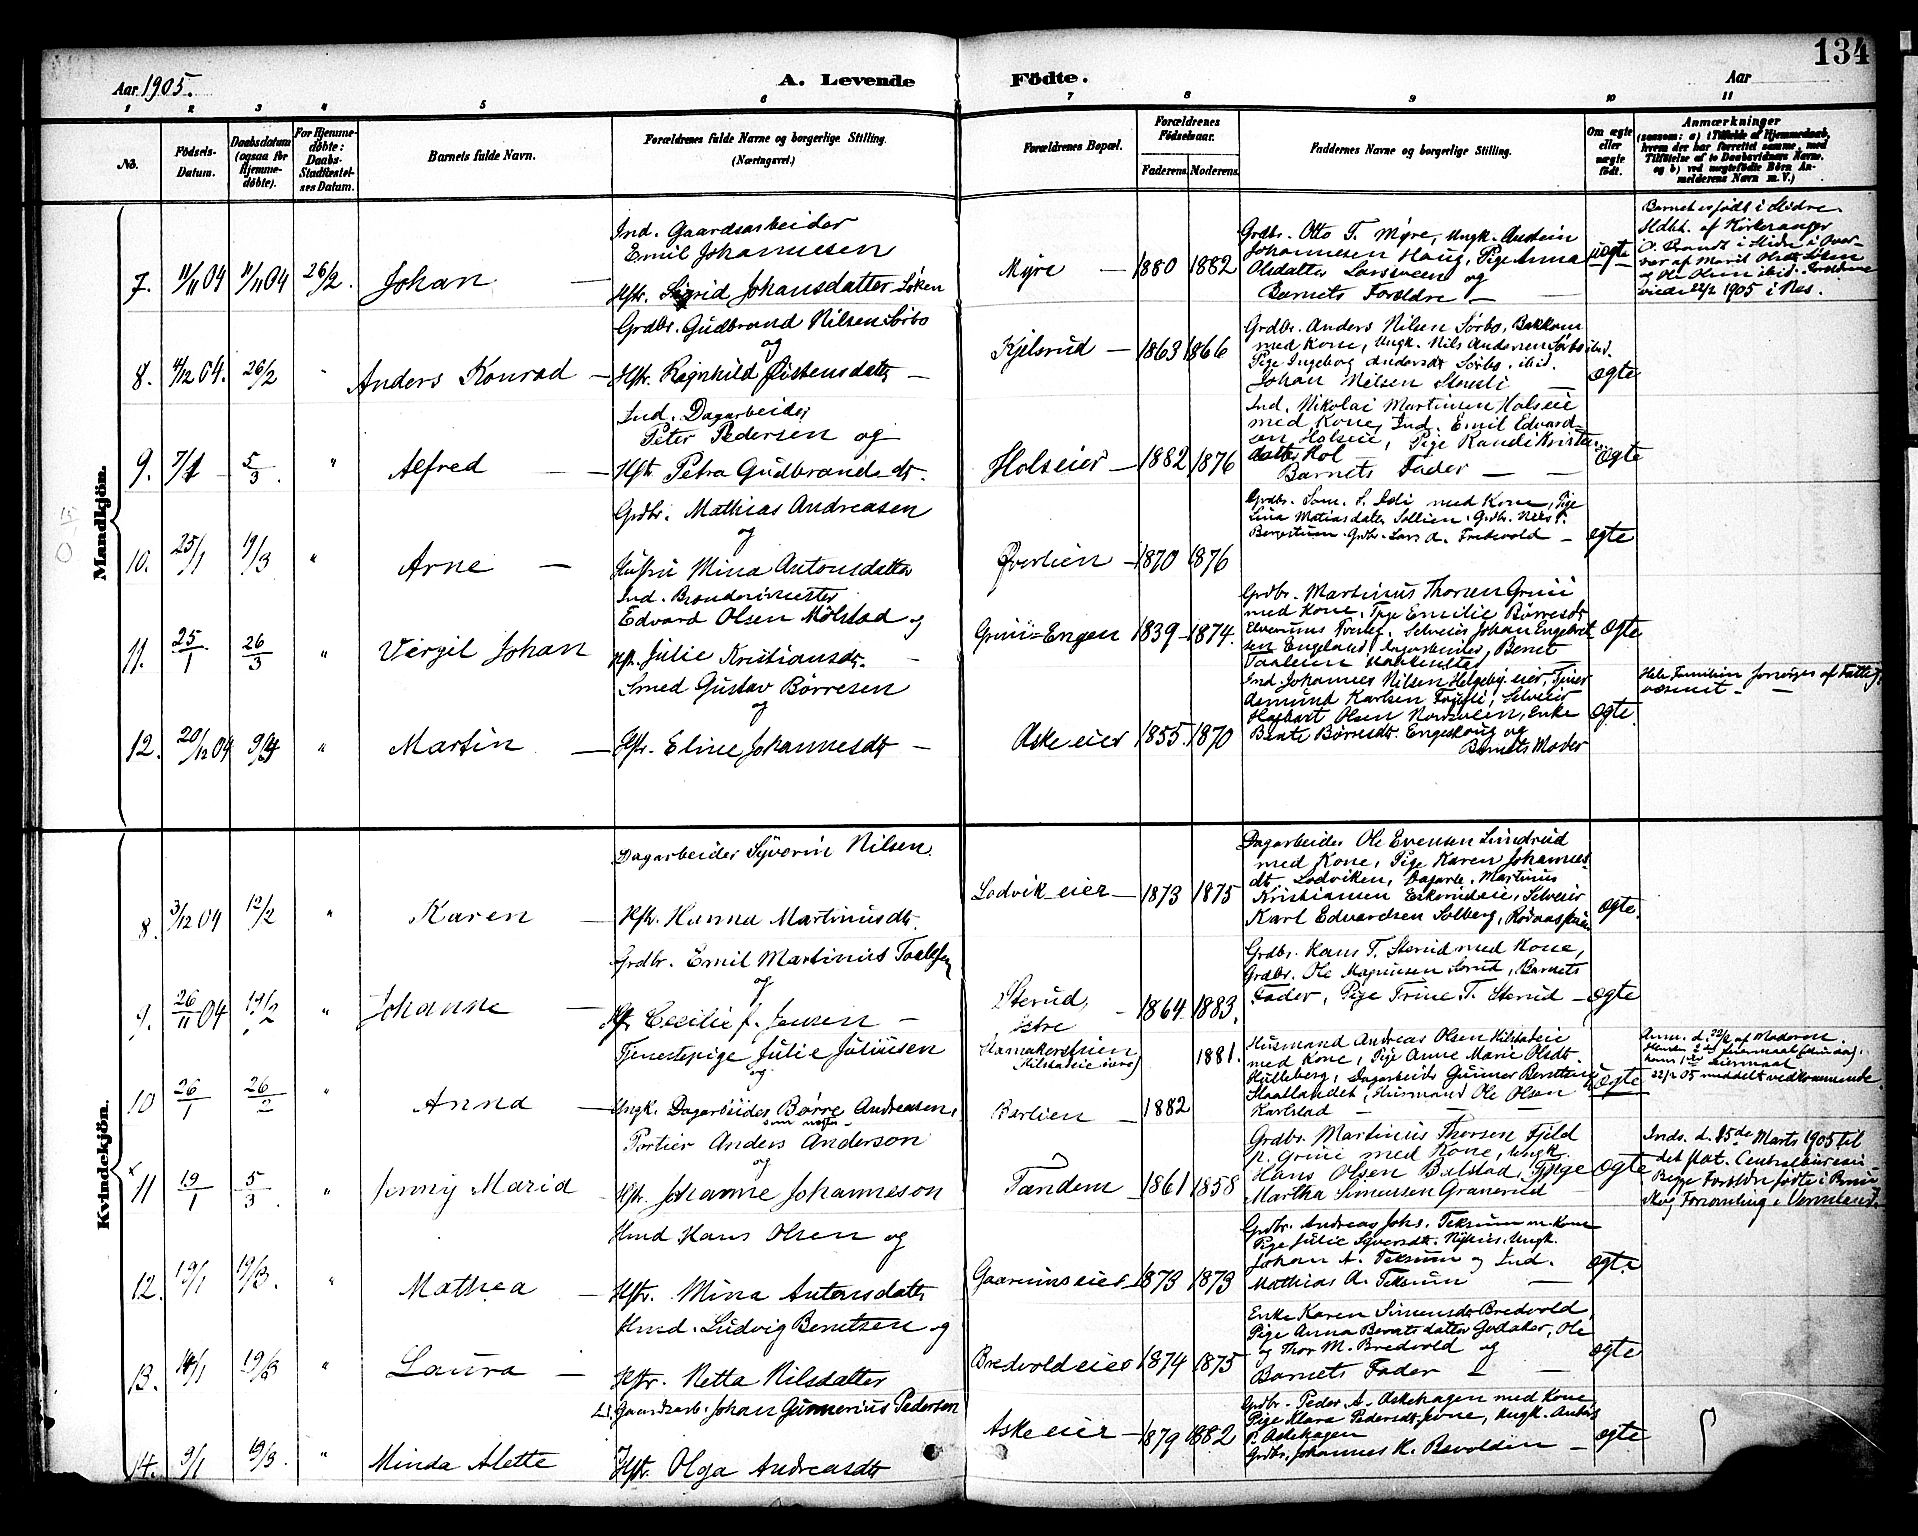 134
Aar 1905.
A. Levende Fødte.
Aar
1 2 3 4 5 6 7 8 9 10 11
No.
Fødsels-Datum.
Daabsdatum (ogsaa for Hjemmedøbte).
For Hjemmedøbte: Daabs-Stadfæstelses Datum.
Barnets fulde Navn.
Forældrenes fulde Navne og borgerlige Stilling.
(Næringsvei.)
Forældrenes Bopæl.
Forældrenes Fødselsaar.
Faderens. Moderens.
Faddernes Navne og borgerlige Stilling.
Om ægte eller uægte født.
Anmærkninger
(saasom: a) i Tilfælde af Hjemmedaab, hvem der har forrettet samme, med Tilføielse af to Daabsvidners Navne, og b) ved uægtefødte Børn Anmelderens Navn m. V.)
Mandkjön.
7. 11/11 04 11/11 04 26/2. Johan —
Ind. Gaardsarbeider
Emil Johannesen
Hstr. Sigrid Johansdatter Løken
Myre — 1880 1882
Grdbr. Otto T. Myre, Ungk. Anstein
Johannesen Haug, Pige Anna
Olsdatter Larssveen og
Barnets Forældre —
uægte
Barnet er født i Hidre.
viede 22/2 1905 i Nes.
8. 4/12 04. 26/2 " Anders Konrad —
Grdbr. Gudbrand Nilsen Sørbo
og
Hstr. Ragnhild Østensdatter —
Kjelsrud — 1863 1866
Grdbr. Anders Nilsen Sørbo, Bakkom
med Kone, Ungk. Nils Andersen Sørbo ibid.
Pige Ingeborg Andersdt Sørbo, ibid.
Johan Nilsen
ægte
9. 7/1 5/3. " Alfred —
Ind. Dagarbeider
Peter Pedersen og
Hstr. Petra Gudbrandsdt.
Holseier — 1882 1876
Ind. Nikolai Martinsen Holseie
med Kone, Ind. Emil Edvard-
sen Holseie, Pige Randi Kristians-
datter Hol
Barnets Fader —
ægte
10. 25/1 19/3 " Arne —
Grdbr. Mathias Andreasen
og
Hustru Mina Antonsdatter
Øverlien — 1870 1876
med Kone, Pige
Lina Matiasdatter Sollien, Grdbr. Nils
Grdbr. Lars A.
ægte
11. 25/1 26/3 " Virgil Johan
Ind. Brænderimester
Edvard Olsen Mølstad og
Hstr. Julie Kristiansdt. —
Grini-Engen 1839 1874.
Grdbr. Martinus Thorsen Grini
med Kone, Tpge Emilie Børresdt
Selveier Johan Engebret
sen Engeland, Dagarbeider, Bernt
ægte
12. 20/12 04 9/4 " Martin —
Smed Gustav Børresen
og
Hstr. Eline Johannesdt —
Askeeier 1855. 1870
Ind. Johannes Nilsen Helgebyeier, Tjener
Asmund Karlsen Selveier
Olsen Nordsveen, Enke
Bente Børresdt. Engeskoug og
Barnets Moder
ægte.
Hele Familien forsørges af Fattig-
væsenet. —
Kvindekjön.
8. 3/12 04 12/2 " Karen —
Dagarbeider Syverin Nilsen.
Hstr. Hanna Martinusdt.
Lodvikeier — 1873 1875
Dagarbeider Ole Evensen Lundrud
med Kone, Pige Karen Johannes-
dt. Lodviken, Dagarb. Martinus
Kristiansen Eskerudeie, Selveier
Karl Edvardsen Solberg,
ægte.
9. 26/11 04 19/2 " Johanne —
Grdbr. Emil Martinius
og
Hstr. Cecilie J. Jensen —
Sterud,
østre — 1864 1883.
Grdbr. Hans T. Sterud med Kone,
Grdbr. Ole Magnusen Sørud, Barnets
Fader, Pige Trine T. Sterud —
ægte
10 26/1 26/2 " Anna —
Tjenestepige Julie Juliusen
og
Ungk. Dagarbeider Børre Andreasen.
1881.
Berlien 1882
Husmand Andreas Olsen Kilstadeie
med Kone, Pige Anne Marie Olsdt.
Hulleberg, Dagarbeider Gunner Berntsen
Husmand Ole Olsen
Karlstad — — —
uægte
Anm. d. 22/2 af Moderen.
22/2 05 meddelt vedkommende
11 19/1 5/3. " Jenny Maria
Portier Anders Anderson
og
Hstr. Johanne Johanneson
Tandem — 1861 1858
Grdbr. Martinus Thorsen Fjeld
p. Grini med Kone, Ungk.
Hans Olsen Bolstad, Tpige
Martha Simensen Granerud —
ægte
Inds. d. 25de Marts 1905 til
det stat. Centralbureau
Begge Forældre fødte i
Forsamling i Vermland.
12. 19/1 19/3. " Mathea —
Hmd Hans Olsen og
Hstr. Mina Antonsdatter
Gaarumseier 1873 1873
Grdbr. Andreas Johs. Teksum m. Kone
Pige Julie Syversdt. Nyhus, Ungk.
Johan A. Teksum og Ind.
Mathias A. Teksum —
ægte
13. 14/1 19/3 " Laura —
Hmd. Ludvig Berntsen og
Hstr. Netta Nilsdatter
Bredvoldeier 1874 1875
Enke Karen Simensdt Bredvold,
Pige Anna Berntsdatter Godaker, Ole
og Thor M. Bredvold og
Barnets Fader —
ægte
14. 9/1 19/3. " Minda Alette
Gaardsarb. Johan Gunnerius Pedersen
Hstr. Olga Andreasdt
Askeeier — 1879 1882
Grdbr. Peder A. Askehagen med Kone
Pige Klara Pedersdt ibid., Ungk. Anton
P. Askehagen
Grdbr. Johannes K. Bevolden —
ægte